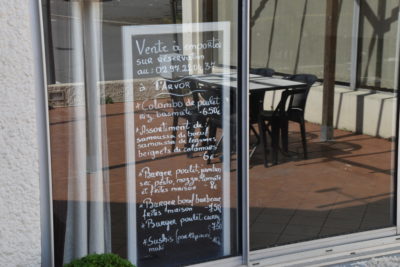 Vente à emporter
sur réservation
au : 02.97.21.04.37
à l'ARVOR
*Colombo de poulet
riz basmati - 6.50€
*Assortiment de
samoussa de bœuf
samoussa de légumes
beignets de calamars
6€
*Burger poulet, jambon
sec, pesto, mozza, tomate
et frites maison 8€
*Burger bœuf/barbecue
frites maison 7.50
*Burger poulet curry
7.50
*Sushis